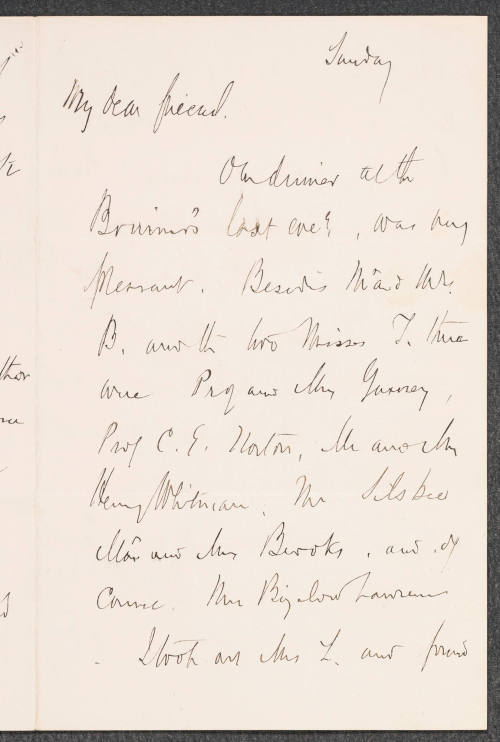 Sunday
My dear friend.
Our dinner at the
last eve'g, was very
pleasant. Besides Mr and Mrs.
B. and the two Misses T. there
were Prof and Mrs Gurney,
Prof C. E. Norton, Mr and Mrs
Henry Whitman, Mr Silsbee
Mr and Mrs Brooks, and of
course Mrs Bigelow Lawrence
I took out Mrs L. and found